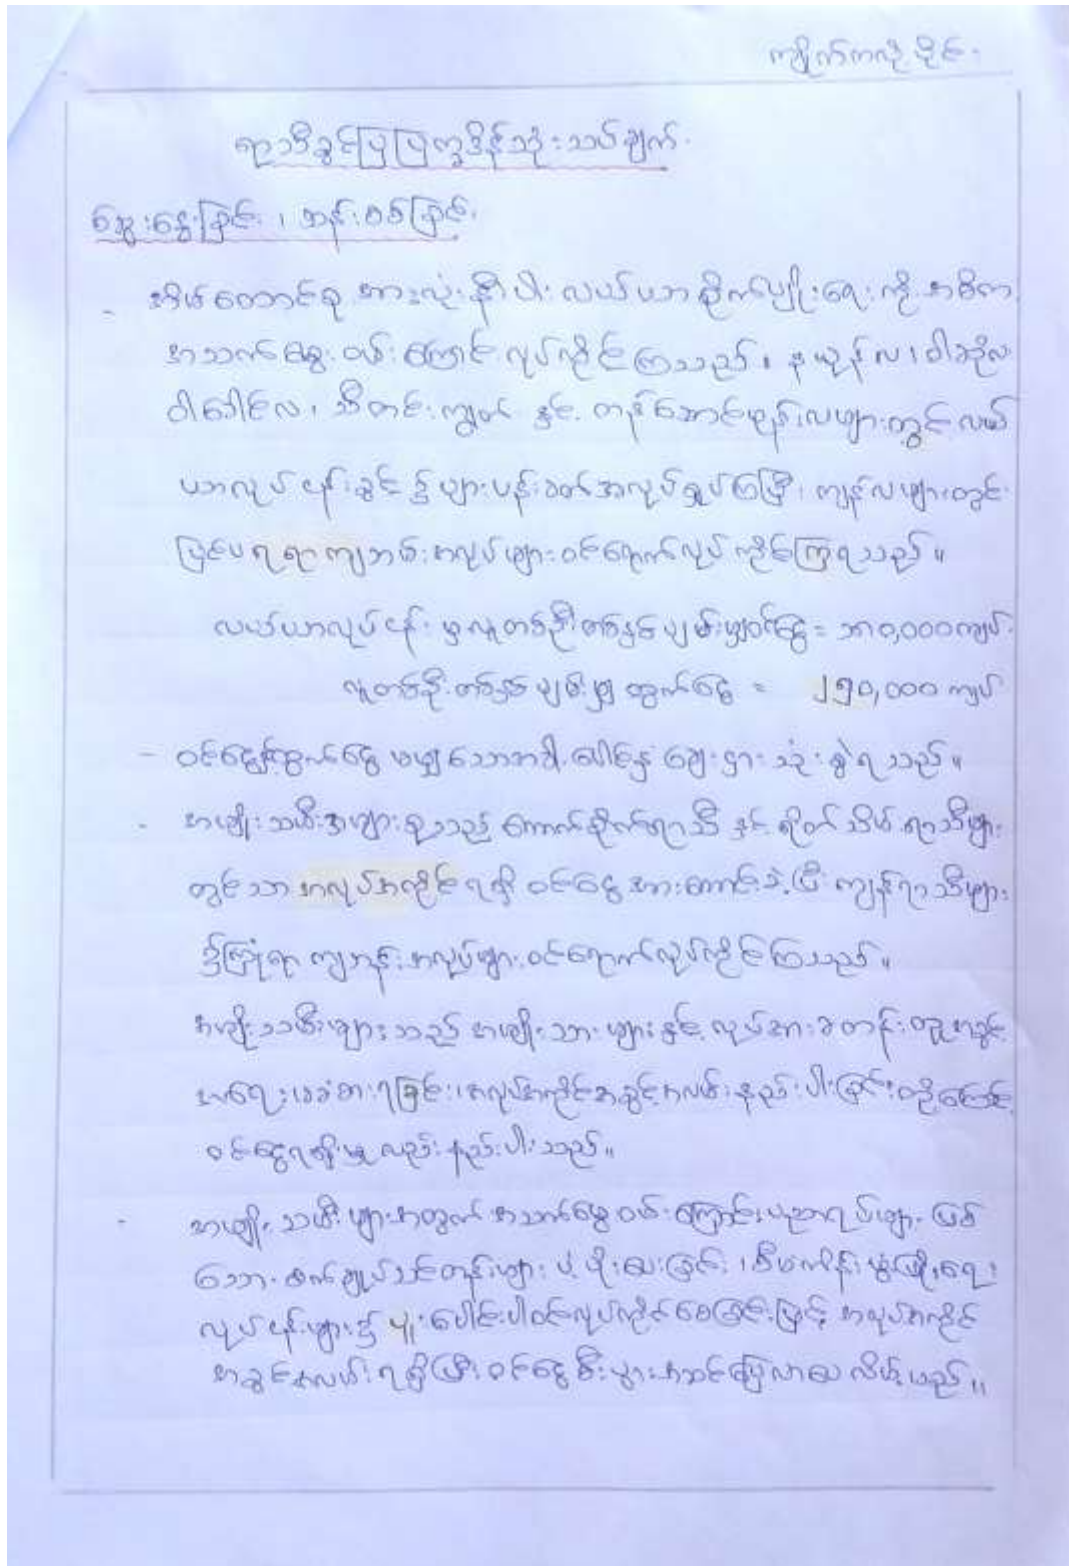 ကျိုက်ကလိုပိုင်း
ရာသီခွင်ပြပြက္ခဒိန်သုံးသပ်ချက်
ဆွေးနွေးခြင်း၊ ဆန်းစစ်ခြင်း
- အိမ်ထောင်စု အားလုံးနီးပါး လယ်ယာစိုက်ပျိုးရေးကို အဓိက
အသက်မွေးဝမ်းကြောင်းလုပ်ကိုင်ကြသည်။ နယုန်လ၊ ဝါဆိုလ
ဝါခေါင်လ၊ သီတင်းကျွတ် နှင့် တန်ဆောင်မုန်းလများတွင် လယ်
ယာလုပ်ငန်းခွင်၌ များပန်းခတ်အလုပ်ရှုပ်ကြပြီး၊ ကျန်လများတွင်
ပြင်ပ ရရာကျဘမ်းအလုပ်များ ဝင်ရောက်လုပ်ကိုင်ကြရသည်။
လယ်ယာလုပ်ငန်းမှ လူတစ်ဦးတစ်နှစ်ပျမ်းမျှဝင်ငွေ = ၁၈၀,၀၀၀ကျပ်
လူတစ်ဦးတစ်နှစ်ပျမ်းမျှ ထွက်ငွေ = ၂၅၀,၀၀၀ ကျပ်
- ဝင်ငွေနှင့်ထွက်ငွေ မမျှသောအခါ ပေါင်နှံ ချေးငှား သုံးစွဲရသည်။
- အမျိုးသမီးအများစုသည် ကောက်စိုက်ရာသီ နှင့် ရိတ်သိမ်းရာသီများ
တွင်သာ အလုပ်အကိုင်ရရှိ ဝင်ငွေ အားကောင်းခဲ့ပြီး ကျန်ရာသီများ
၌ကြုံရာကျဘန်းအလုပ်များ ဝင်ရောက်လုပ်ကိုင်ကြသည်။
အမျိုးသမီးများသည် အမျိုးသားများနှင့် လုပ်အားခတန်းတူအခွင့်
အရေးမခံစားရခြင်း၊ အလုပ်အကိုင်အခွင့်အလမ်းနည်းပါးခြင်းတို့ကြောင့်
ဝင်ငွေရရှိမှုလည်း နည်းပါးသည်။
- အမျိုးသမီးများအတွက် အသက်မွေးဝမ်းကြောင်းပညာရပ်များ ဖြစ်
သော စက်ချုပ်သင်တန်းများ ပံ့ပိုးပေးခြင်း၊ စီမံကိန်းဖွံ့ဖြိုးရေး
လုပ်ငန်းများ၌ ပူးပေါင်းပါဝင်လုပ်ကိုင်စေခြင်းဖြင့် အလုပ်အကိုင်
အခွင့်အလမ်းရရှိပြီး ဝင်ငွေစီးပွားအဆင်ပြေလာပေလိမ့်မည်။